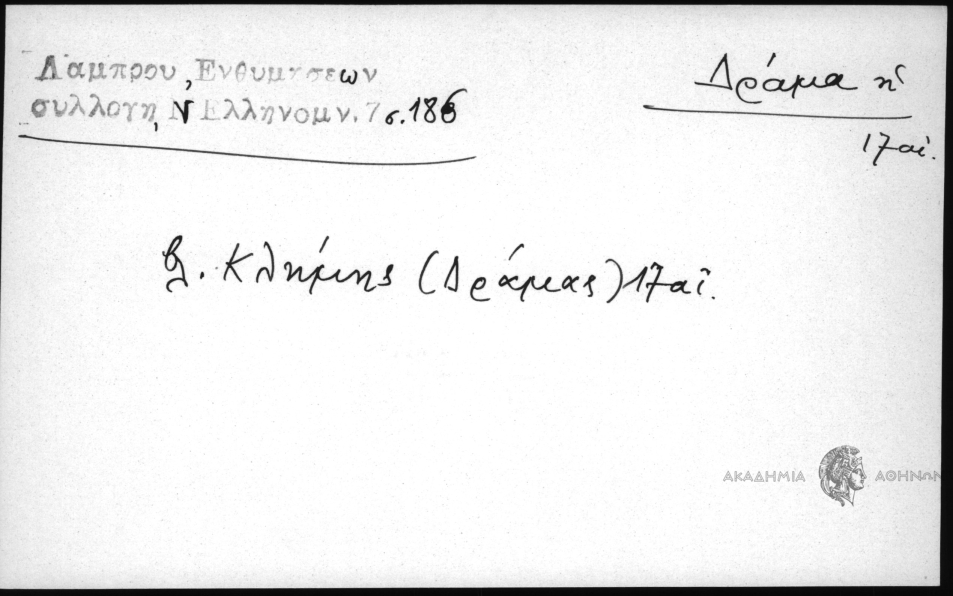 Λαμπρου, Ενθυμησεων
συλλογη, Ν Ελληνομν. 7 σ. 186
Δράμα ἡ
17 αἰ.
Κλήμης (Δράμας) 17 αἰ.
ΑΚΑΔΗΜΙΑ ΑΘΗΝΩΝ